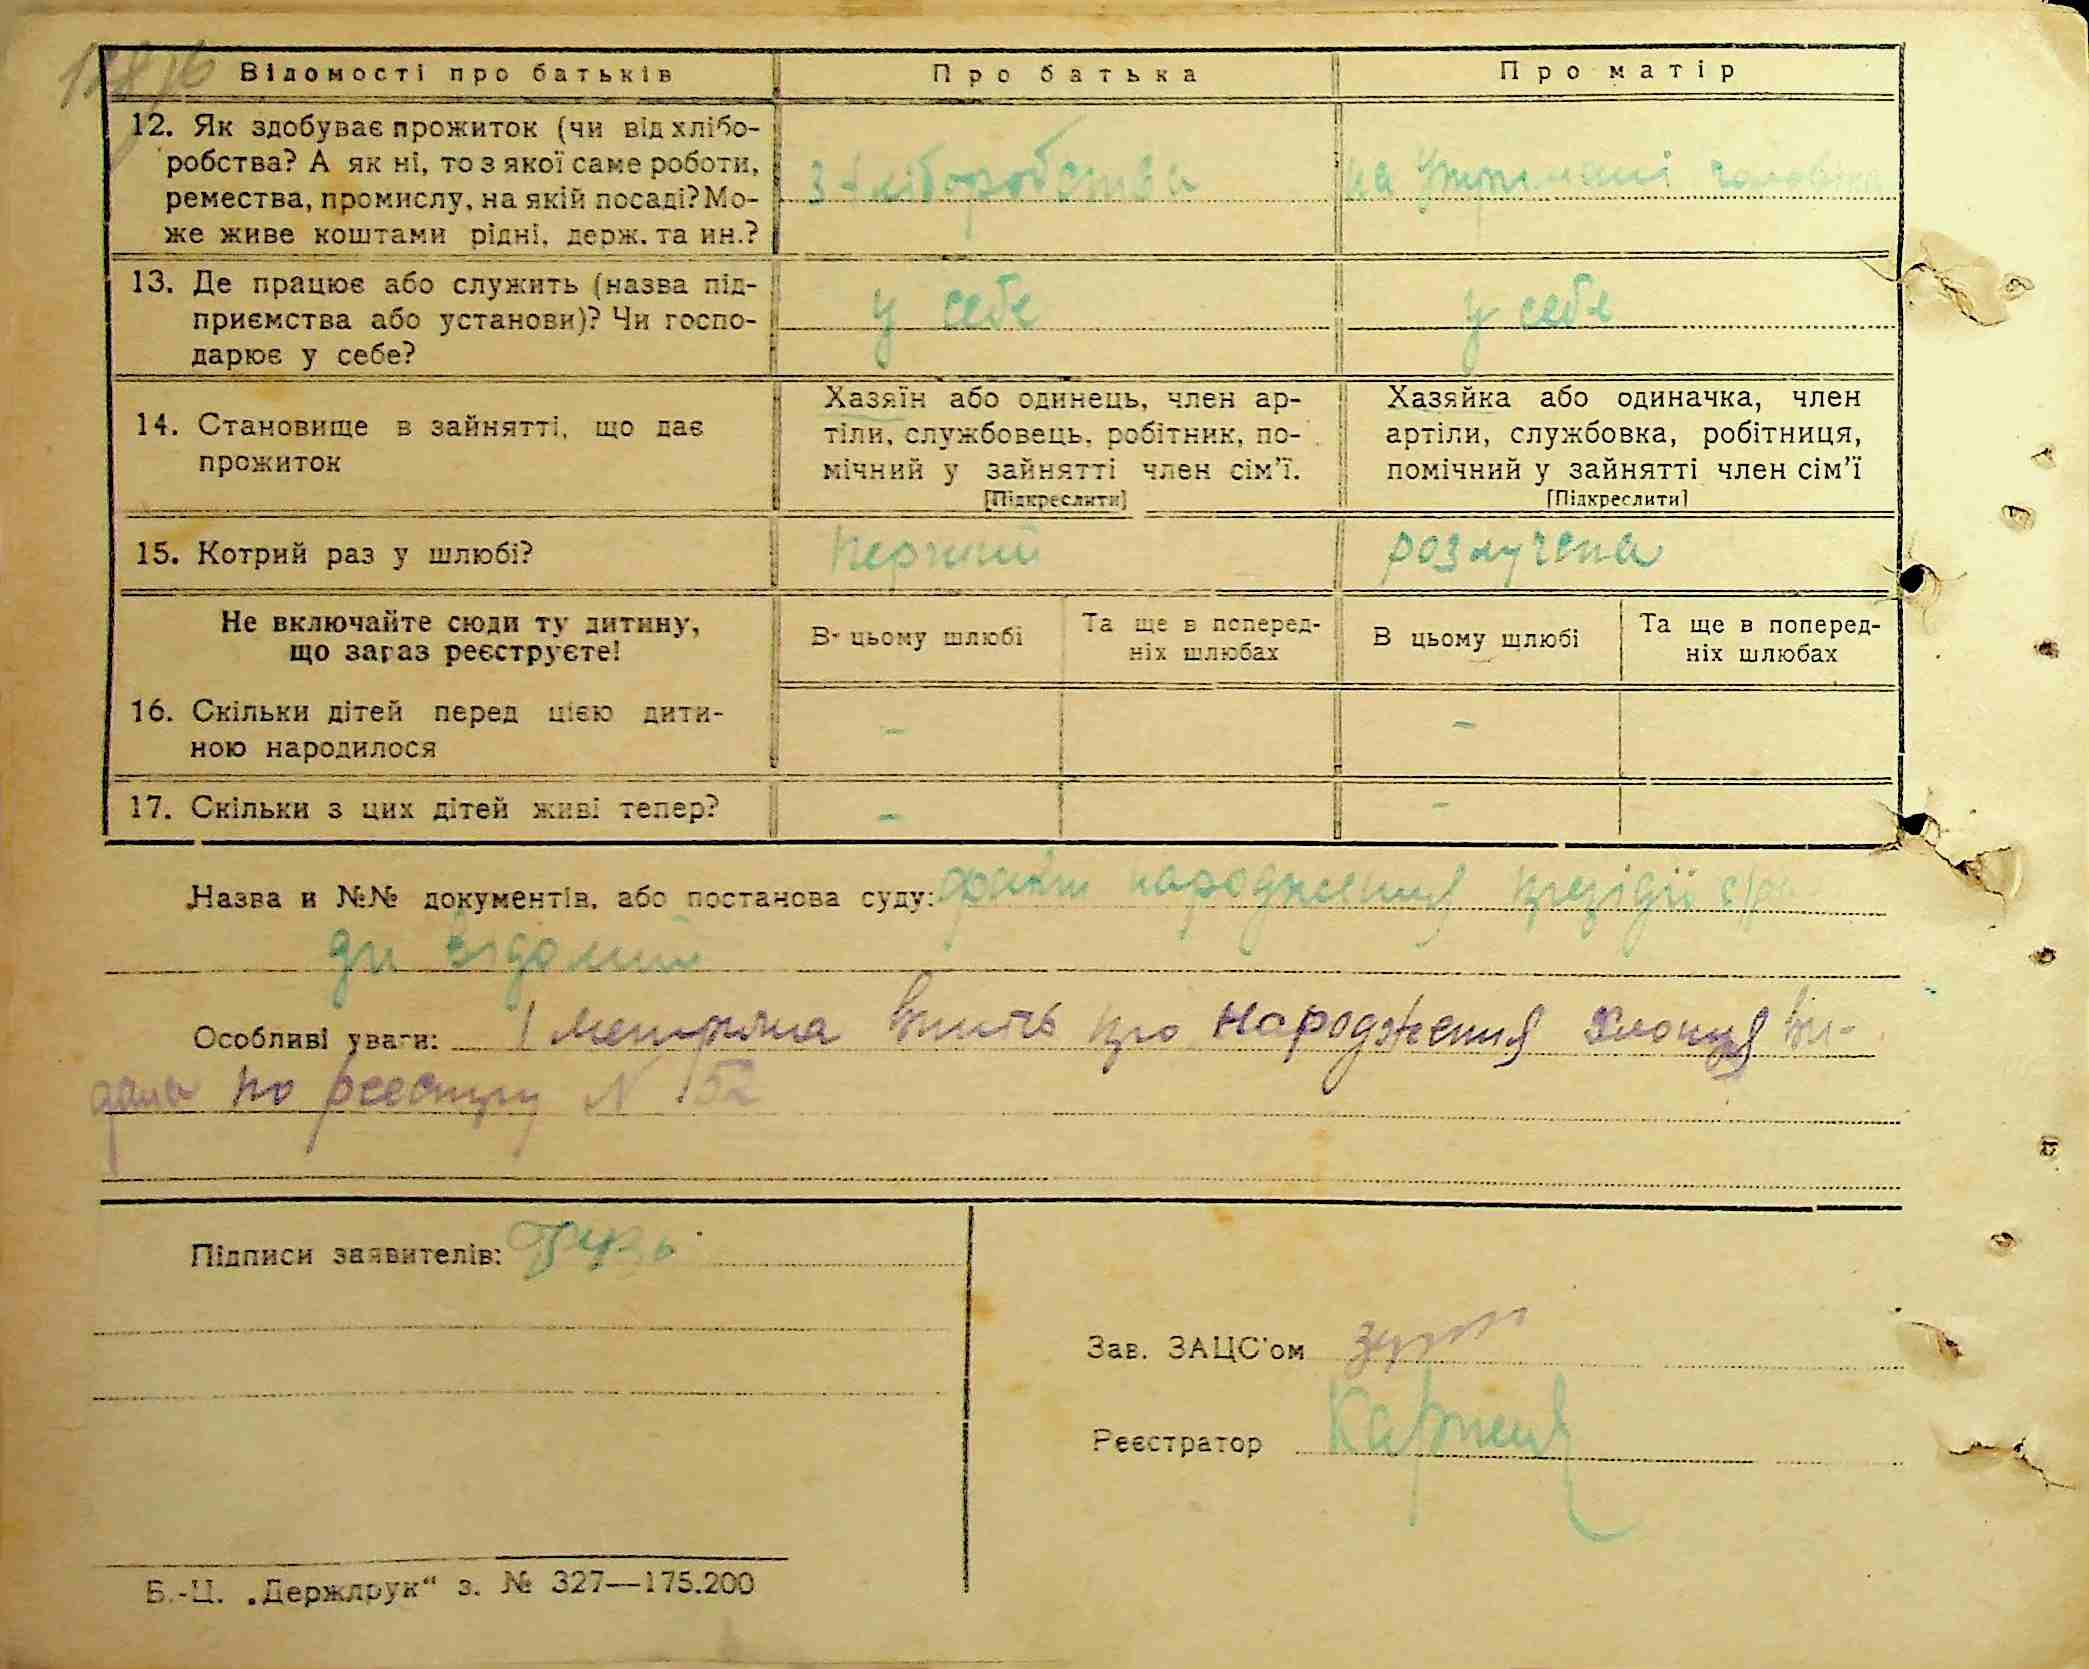 Відомості про батьків Про батька Про матір
12. Як здобуває прожиток (чи від хлібо-
робства? А як ні, то з якої саме роботи,
ремества, промислу, на якій посаді? Мо-
же живе коштами рідні, держ. та ин.?
з хліборобства на утриманні чоловіка
13. Де працює або служить (назва під-
приємства або установи)? Чи госпо-
дарює у себе?
у себе у себе
14. Становище в зайнятті, що дає
прожиток
Хазяїн або одинець, член ар-
тіли, службовець, робітник, по-
мічний у зайнятті член сім'ї.
[Підкреслити]
Хазяйка або одиначка, член
артіли, службовка, робітниця,
помічний у зайнятті член сім'ї
[Підкреслити]
15. Котрий раз у шлюбі? перший розлучена
Не включайте сюди ту дитину,
що зараз реєструєте!
В цьому шлюбі
Та ще в поперед-
ніх шлюбах
В цьому шлюбі
Та ще в поперед-
ніх шлюбах
16. Скільки дітей перед цією дити-
ною народилося
- -
17. Скільки з цих дітей живі тепер? - -
Назва и №№ документів, або постанова суду: факт народження президії с/ра
ди відомий
Особливі уваги: 1 метрична випись про народження хлопця ви-
дана по реестру N 152
Підписи заявителів:
Зав. ЗАЦС'ом
Реєстратор
Б.-Ц. „Держдрук“ з. № 327—175.200